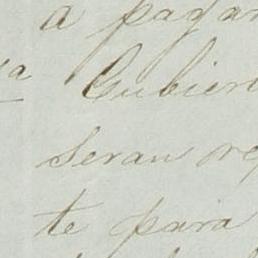 a pagar
Cubiert
seran
te para